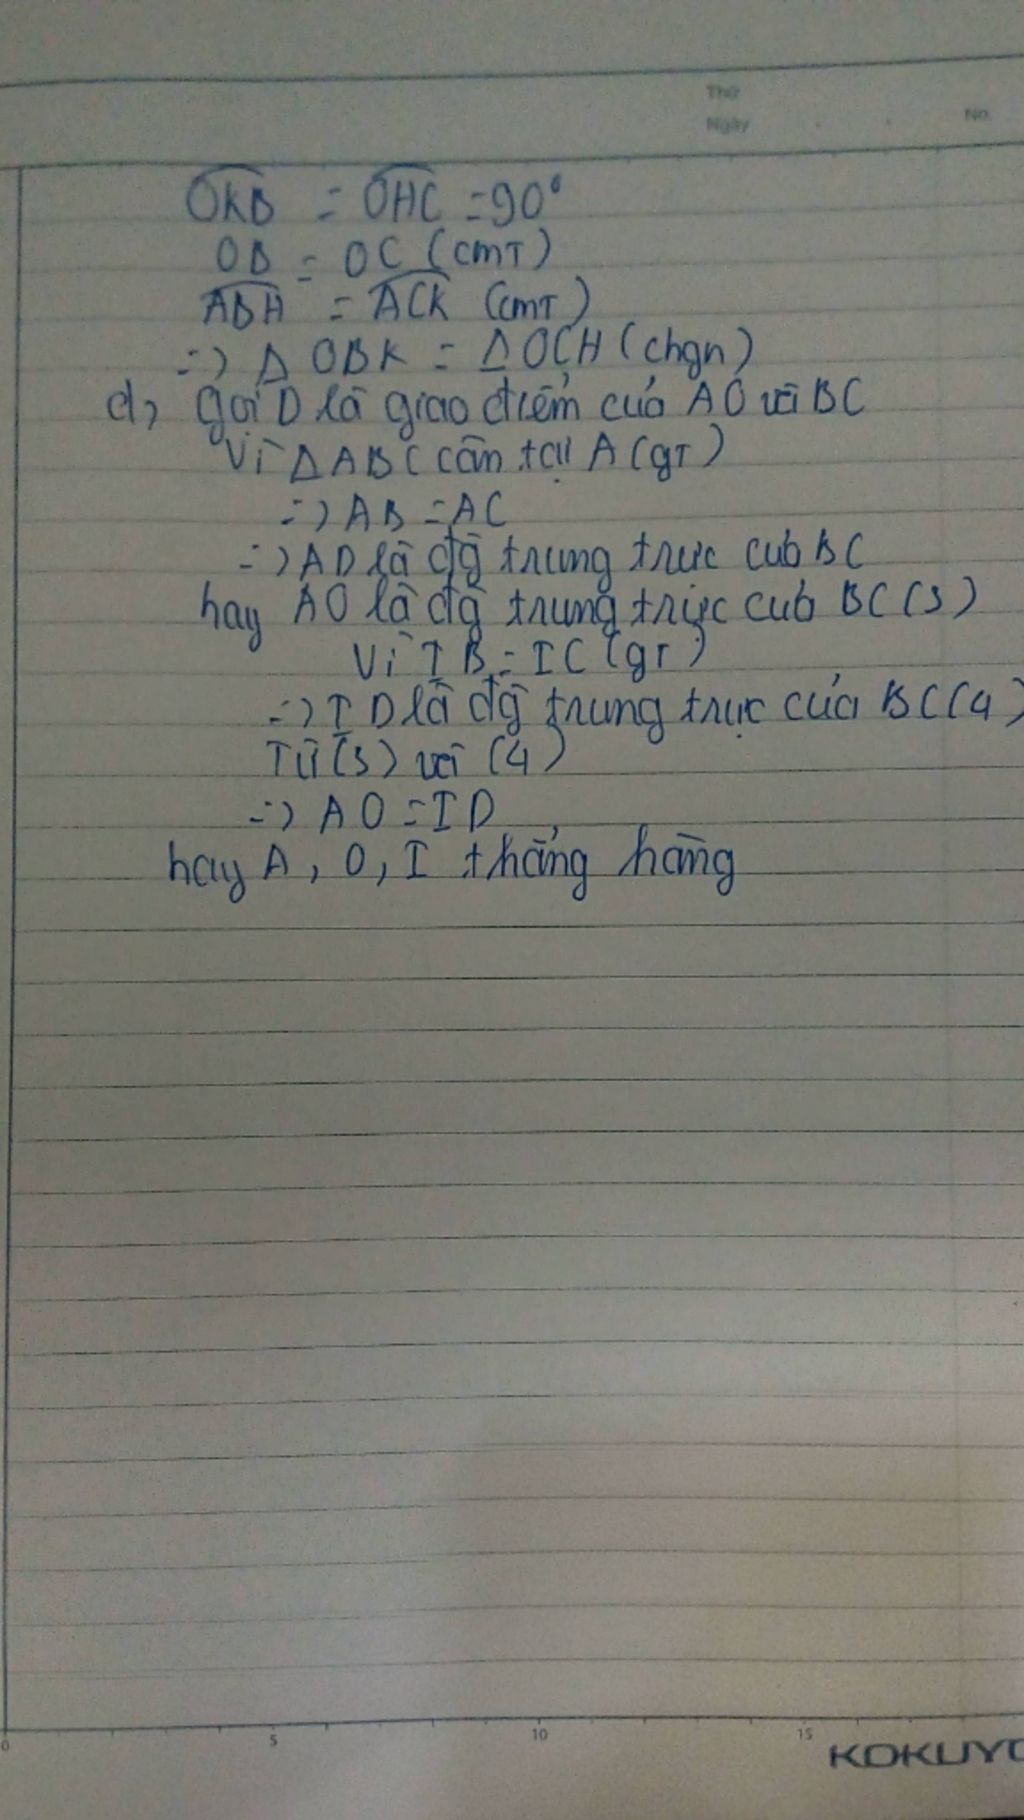 Thứ
Ngày . . No.
OKB = OHC = 90°
OB = OC (cmT)
ABH = ACK (cmT)
=> Δ OBK = Δ OCH (chgn)
d, gọi D là giao điểm của AO và BC
Vì Δ ABC cân tại A (gT)
=> AB = AC
=> AD là đg trung trưc cuả BC
hay AO là đg trung trực cuả BC (3)
Vì IB = IC (gT)
=> ID là đg trung trực của BC (4)
Từ (3) và (4)
=> AO = ID
hay A, O, I thẳng hàng
0 5 10 15
KOKUYO